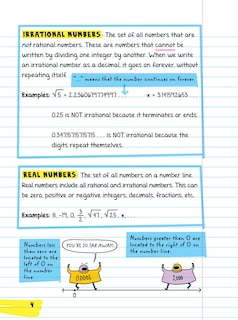 IRRATIONAL NUMBERS The set of all numbers that are
not rational numbers. These are numbers that cannot be
written by dividing one integer by another. When we write
an irrational number as a decimal, it goes on forever, without
repeating itself.
"..." means that the number continues on forever.
Examples: √5 = 2.2360679774997... π = 3.14159265...
0.25 is NOT irrational because it terminates or ends.
0.3471571571571... is NOT irrational because the
digits repeat themselves.
REAL NUMBERS The set of all numbers on a number line.
Real numbers include all rational and irrational numbers. This can
be zero, positive or negative integers, decimals, fractions, etc.
Examples: 8, -19, 0, 3/2, √47, √25, π, ...
Numbers less
than zero are
located to the
left of 0 on
the number
line.
YOU'RE SO FAR AWAY!
Numbers greater than 0 are
located to the right of 0 on
the number line.
0
4